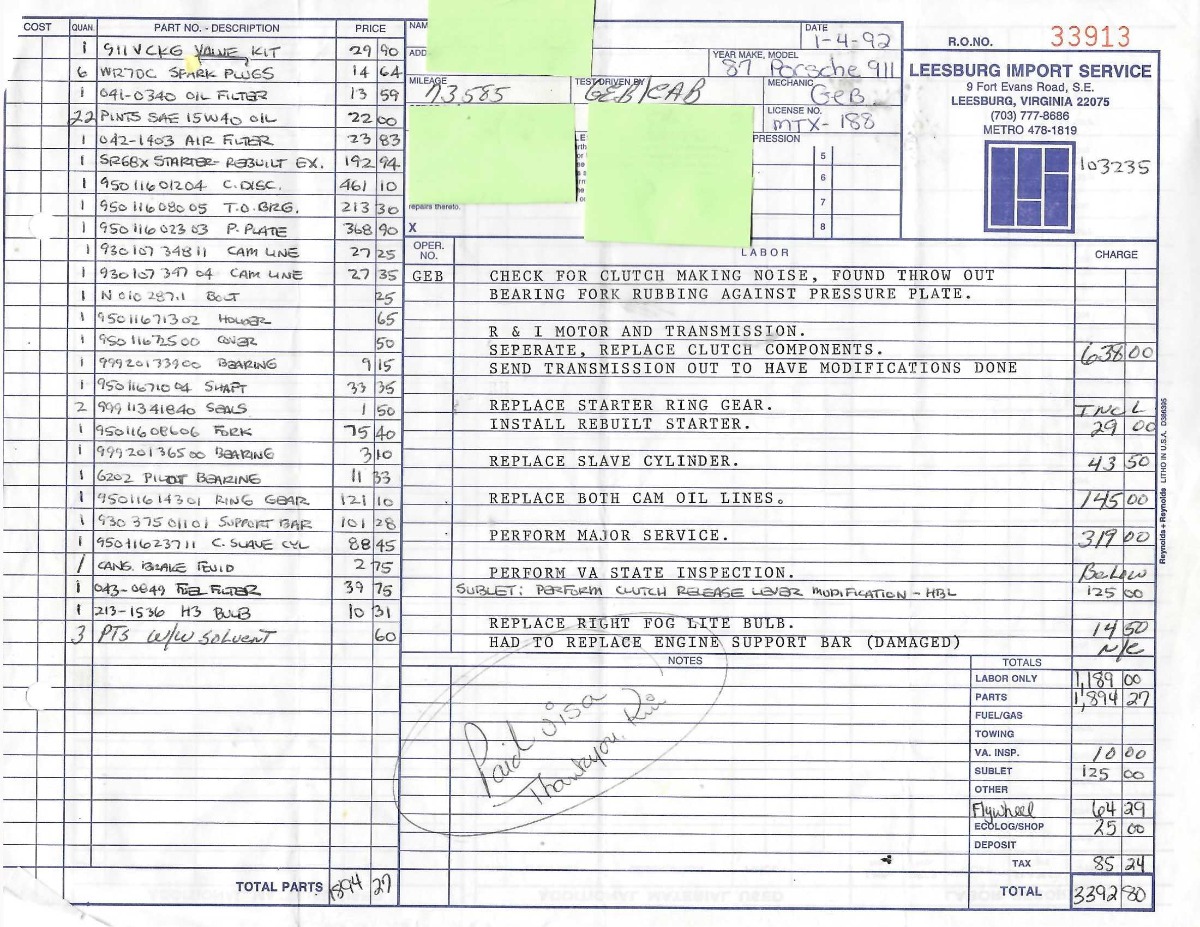 COST QUAN. PART NO. - DESCRIPTION PRICE
1 911VCKG VALVE KIT 29 90
6 WR7DC SPARK PLUGS 14 64
1 041-0340 OIL FILTER 13 59
22 PINTS SAE 15W40 OIL 22 00
1 042-1403 AIR FILTER 23 83
1 SR68X STARTER-REBUILT EX. 192 94
1 95011601204 C.DISC. 461 10
1 95011608005 T.O.BRG. 213 30
1 95011602303 P.PLATE 368 90
1 93010734811 CAM LINE 27 25
1 93010734704 CAM LINE 27 35
1 N 010 287.1 BOLT 25
1 95011671302 HOLDER 65
1 95011672500 COVER 50
1 99920133900 BEARING 9 15
1 95011671004 SHAFT 33 35
2 99911341840 SEALS 1 50
1 95011608606 FORK 75 40
1 99920136500 BEARING 3 10
1 6202 PILOT BEARING 11 33
1 95011614301 RING GEAR 121 10
1 93037501101 SUPPORT BAR 101 28
1 95011623711 C. SLAVE CYL 88 45
1 CANS. BRAKE FLUID 2 75
1 043-0849 FUEL FILTER 39 75
1 213-1536 H3 BULB 10 31
3 PTS W/W SOLVENT 60
TOTAL PARTS 1894 27
NAM
ADD
DATE
1-4-92
YEAR MAKE, MODEL
87 Porsche 911
MILEAGE
73,585
TEST DRIVEN BY
GEB/CAB
MECHANIC
GeB
LICENSE NO.
MTX-188
PRESSION
5
6
7
8
repairs thereto.
X
R.O.NO. 33913
LEESBURG IMPORT SERVICE
9 Fort Evans Road, S.E.
LEESBURG, VIRGINIA 22075
(703) 777-8686
METRO 478-1819
103235
OPER. NO. LABOR CHARGE
GEB CHECK FOR CLUTCH MAKING NOISE, FOUND THROW OUT
BEARING FORK RUBBING AGAINST PRESSURE PLATE.
R & I MOTOR AND TRANSMISSION.
SEPERATE, REPLACE CLUTCH COMPONENTS. 638 00
SEND TRANSMISSION OUT TO HAVE MODIFICATIONS DONE
REPLACE STARTER RING GEAR. INCL
INSTALL REBUILT STARTER. 29 00
REPLACE SLAVE CYLINDER. 43 50
REPLACE BOTH CAM OIL LINES. 145 00
PERFORM MAJOR SERVICE. 319 00
PERFORM VA STATE INSPECTION. Below
SUBLET: PERFORM CLUTCH RELEASE LEVER MODIFICATION - HBL 125 00
REPLACE RIGHT FOG LITE BULB. 14 50
HAD TO REPLACE ENGINE SUPPORT BAR (DAMAGED) N/C
Reynolds + Reynolds LITHO IN U.S.A.
NOTES
Paid Visa
Thankyou,
TOTALS
LABOR ONLY 1,189 00
PARTS 1,894 27
FUEL/GAS
TOWING
VA. INSP. 10 00
SUBLET 125 00
OTHER
Flywheel 64 29
ECOLOG/SHOP 25 00
DEPOSIT
TAX 85 24
TOTAL 3392 80